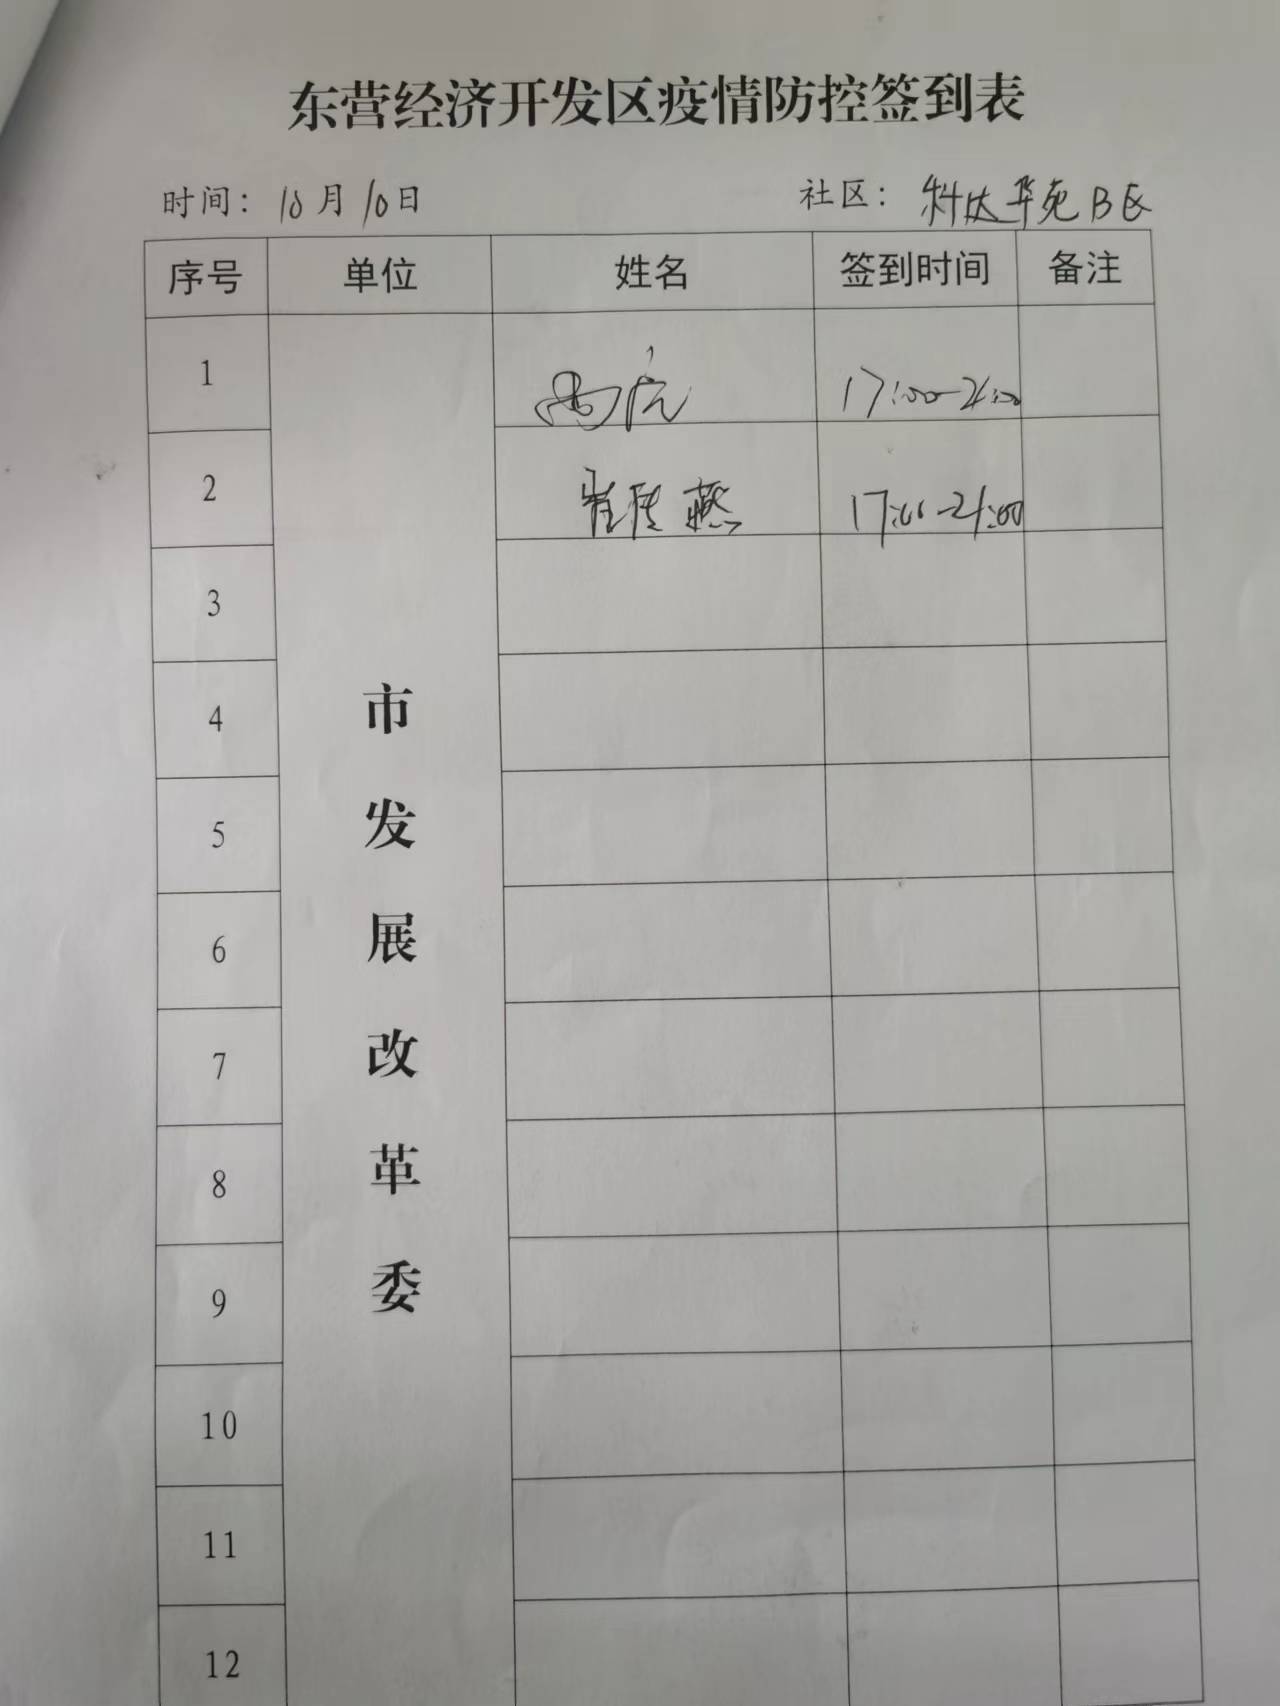 东营经济开发区疫情防控签到表
时间：10月10日 社区：科达华苑B区
序号 单位 姓名 签到时间 备注
市发展改革委
1 17:00-21:00
2 崔传燕 17:00-21:00
3
4
5
6
7
8
9
10
11
12